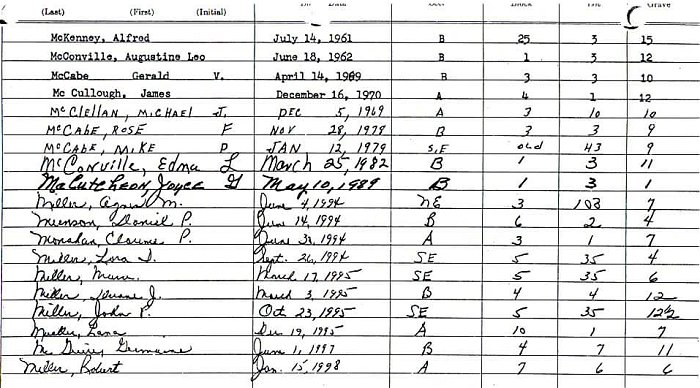 (Last) (First) (Initial) Date Sec. Block Lot Grave
McKenney, Alfred July 14, 1961 B 25 3 15
McConville, Augustine Leo June 18, 1962 B 1 3 12
McCabe Gerald V. April 14, 1969 B 3 3 10
Mc Cullough, James December 16, 1970 A 4 1 12
McClellan, Michael J. Dec 5, 1969 A 3 10 10
McCabe, Rose F Nov 28, 1979 B 3 3 9
McCabe, Mike P Jan 12, 1979 S.E old 43 9
McConville, Edma L March 25, 1982 B 1 3 11
MacCutcheon Joyce G May 10, 1989 B 1 3 1
Miller, Agnes M. June 4, 1994 NE 3 103 7
Munson, Daniel P. June 14, 1994 B 6 2 4
Monahan, Clarence P. June 1994 A 3 1 7
Miller, Lora Sept. 26, 1994 SE 5 35 4
Miller, March 17, 1995 SE 5 35 6
Miller, Duane J. March 3, 1995 B 4 4 12
Miller, John P. Oct 23, 1995 SE 5 35 12½
Mueller, Lena Dec 19, 1995 A 10 1 7
Mc Germaine June 1, 1997 B 4 7 11
Miller, Robert Jan. 15, 1998 A 7 6 6